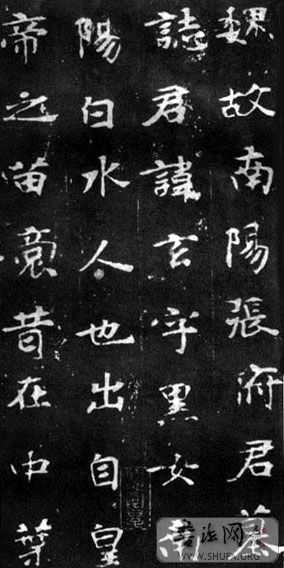 魏故南陽張府君墓
誌君諱玄字黑女南
陽白水人也出自皇
帝之苗裔昔在中葉
书法网
WWW.SHUFA.ORG